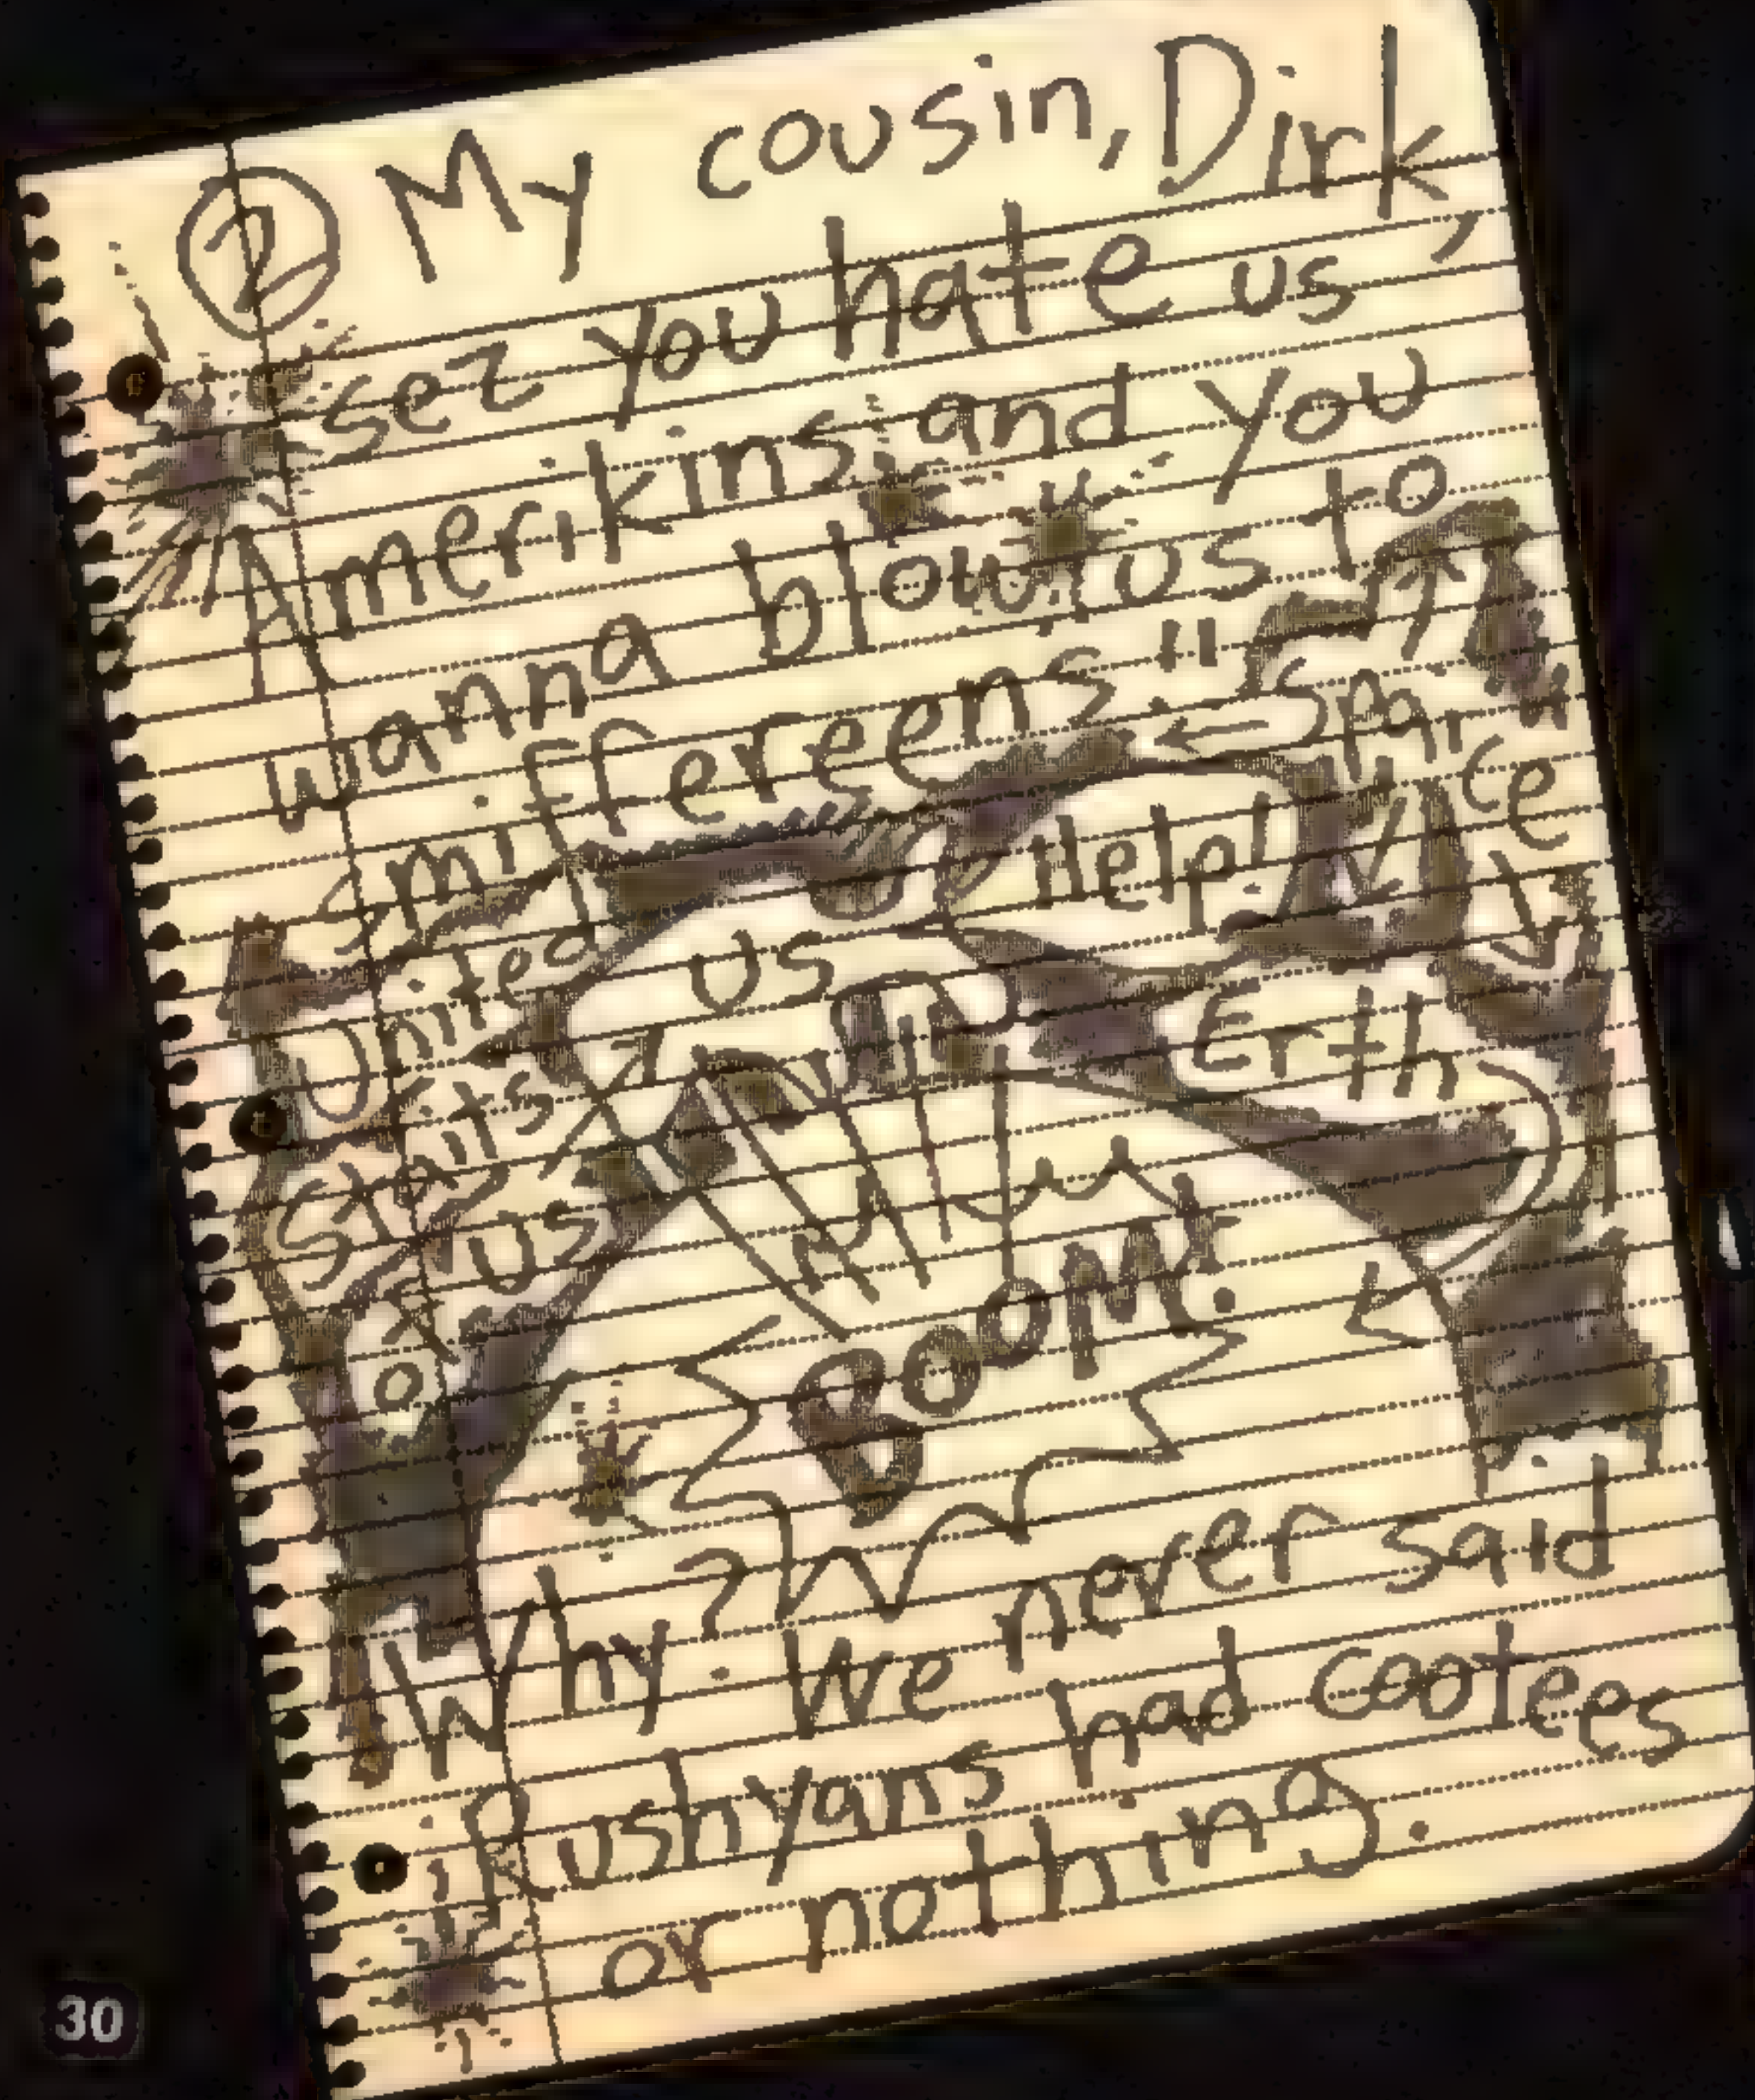 ② My cousin, Dirk,
sez you hate us
Amerikins and you
wanna blow us to
smiffereens."
← Spa
ce
Help!
US
United
Staits
of us
Erth
BOOM!
Why? We never said
Rushyans had cootees
or nothing.
30